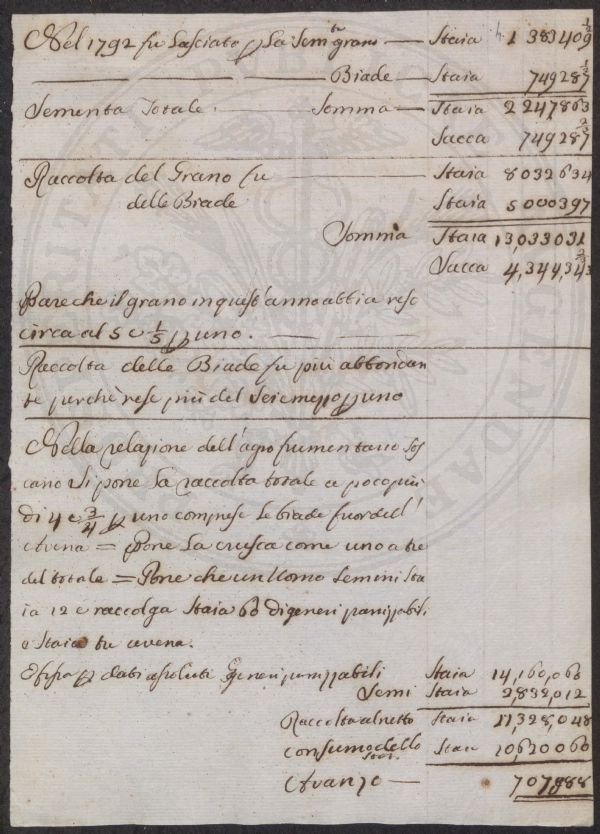 Nel 1792 fu Lasciato p La Sem.ta grano — Staia 1 383409 1/2
Biade — Staia 749287 1/3
Sementa Totale. — Somma — Staia 2 247863
Sacca 749287 2/3
Raccolta del Grano fu — Staia 8032634
delle Biade Staia 5000397
Somma Staia 13,033031
Sacca 4,344,343 2/3
Pare che il grano in quest'anno abbia reso
circa al 5 e 1/5 p uno.
Raccolta delle Biade fu più abbondan
te perchè rese più del Sei e mezzo p uno
Nella relazione dell'agro frumentario Tos
cano Si pone La raccolta totale a poco più
di 4 e 3/4 p uno comprese Le biade fuor dell'
Avena = Pone La crusca come uno a tre
del totale = Pone che un Uomo Semini Sta
ia 12 e raccolga Staia 60 di generi panizzabili
e Staia tre avena.
p dati assoluti Generi panizzabili Staia 14,160,060
Semi Staia 2,832,012
Raccolta al netto Staia 11,328,048
consumo dello Staia 10,620060
Avanzo — 707988